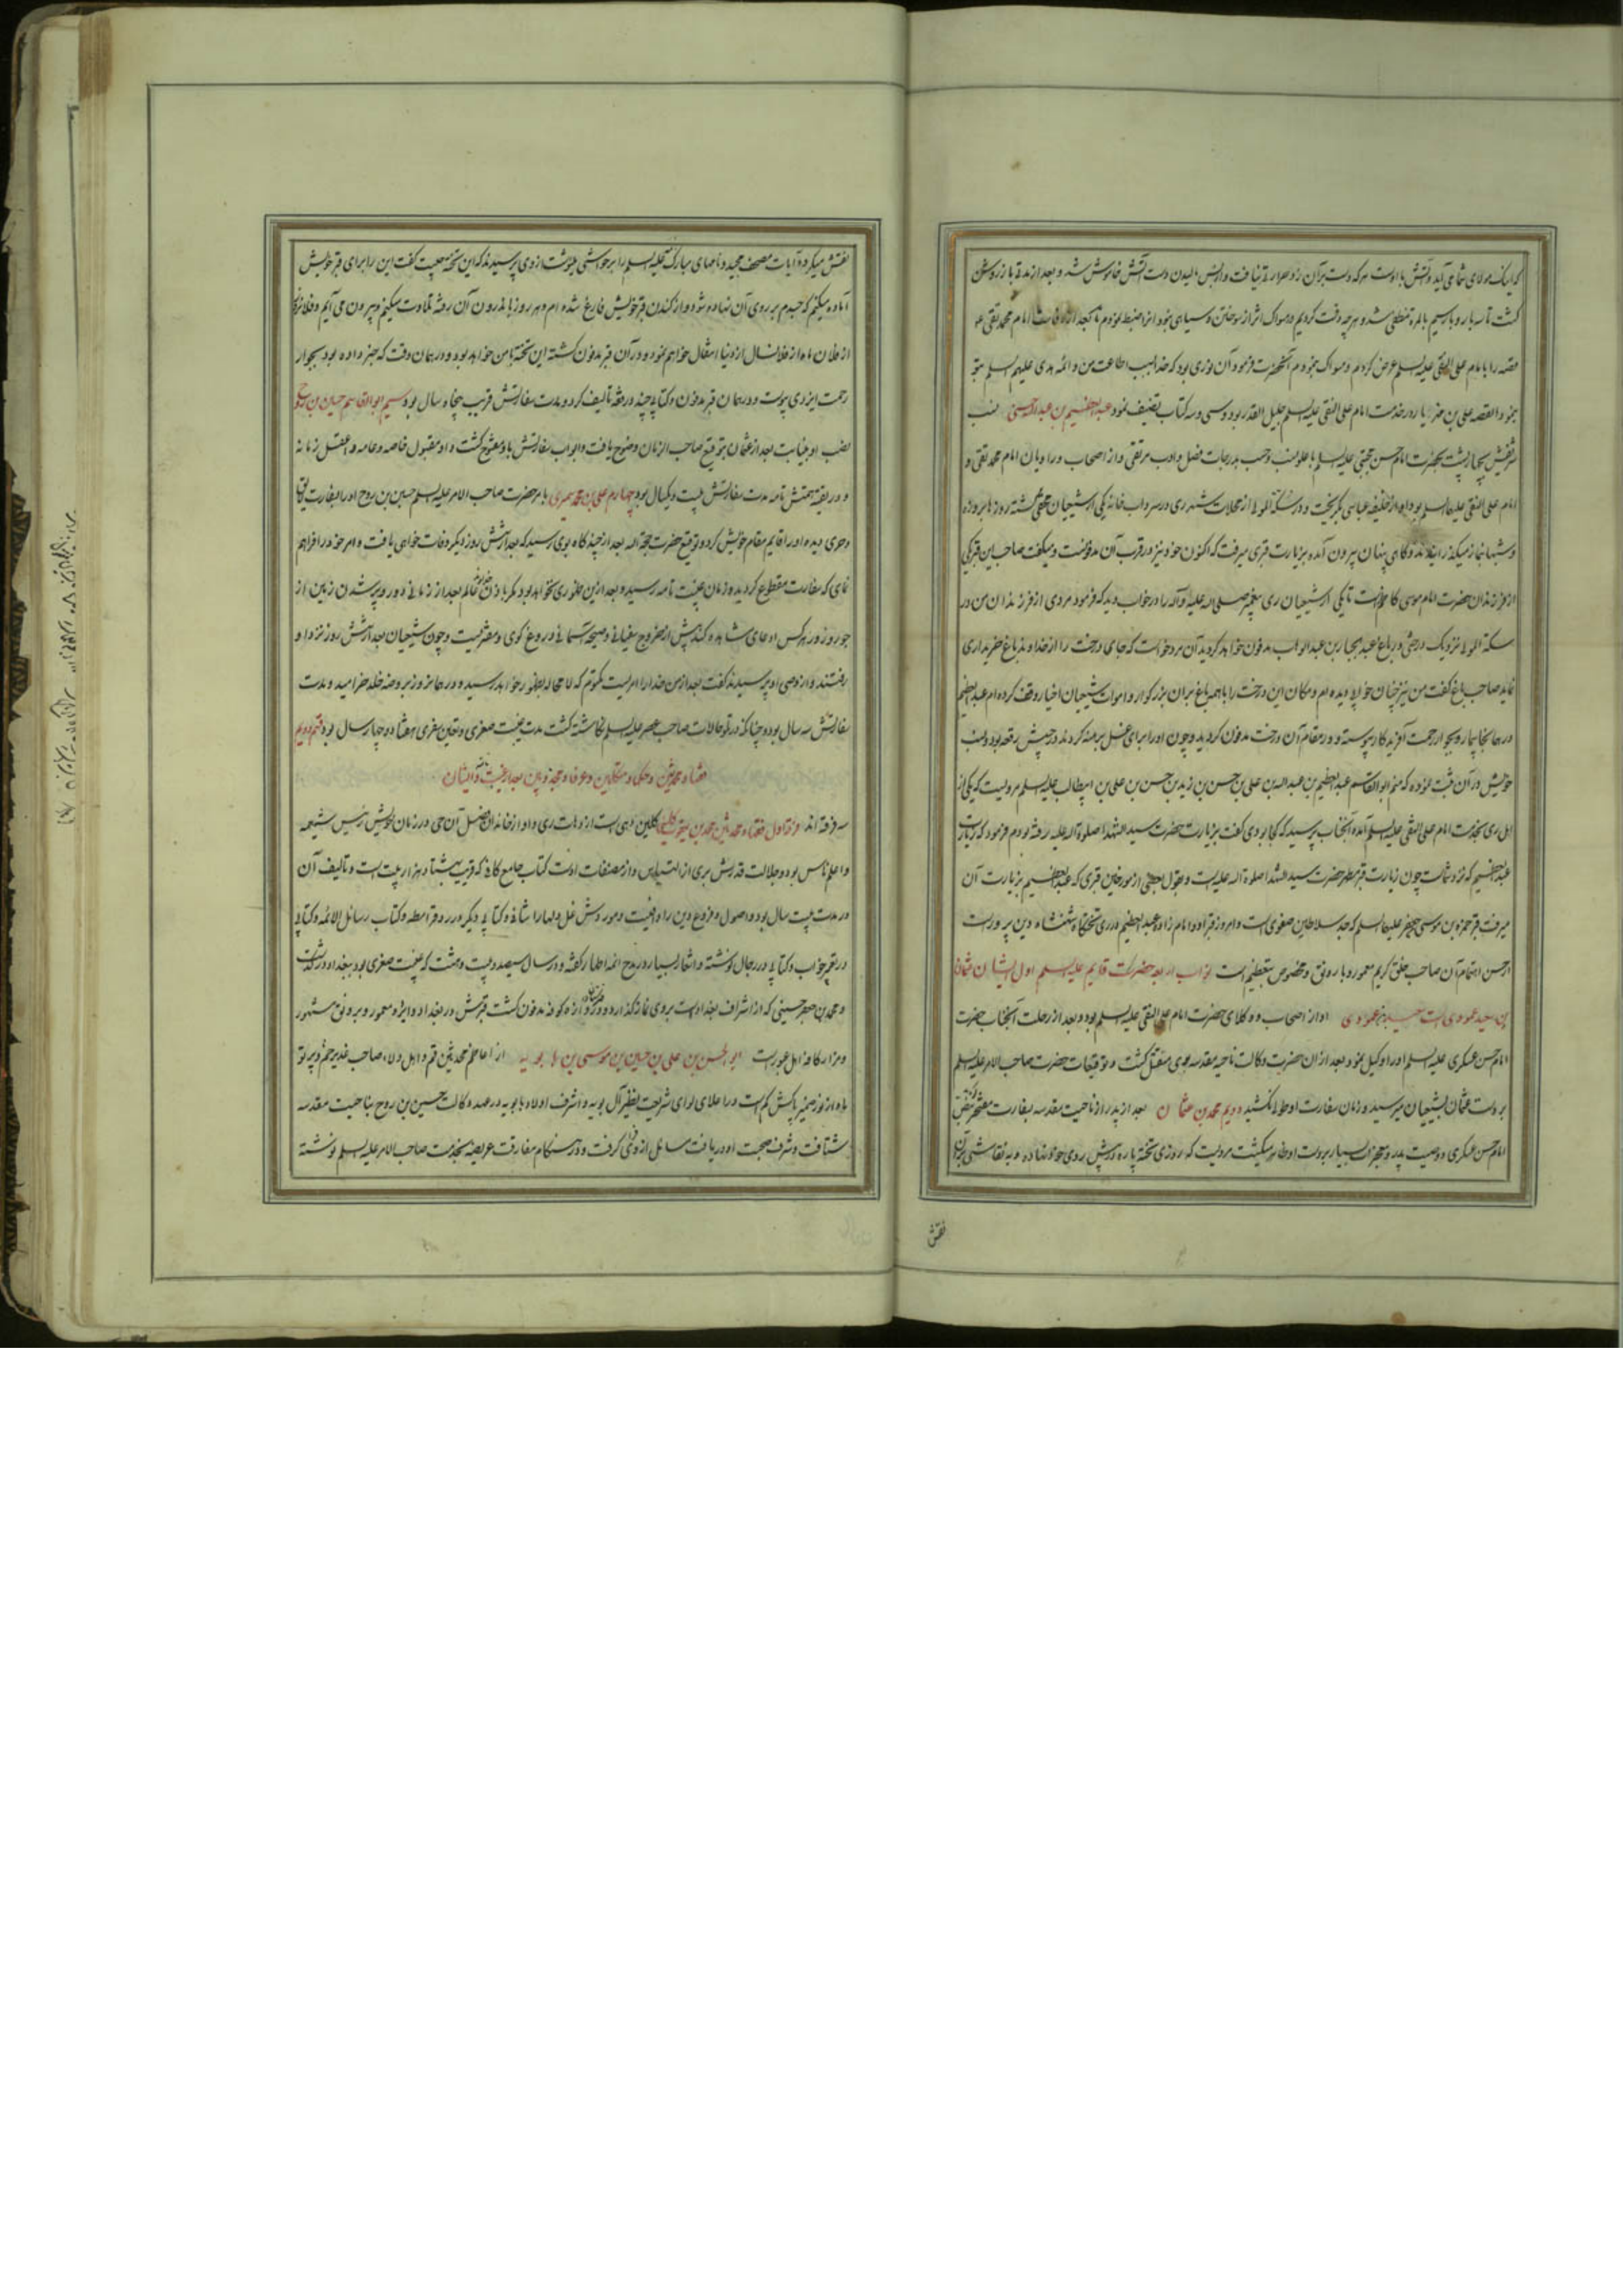 که اینک مولای شما می آید و آتش با اوست هر که دست بر آن زد حرارت نیافت و از پس مالیدن دست آتش خاموش شد و بعد از مدتی باز روشن
گشت تا سه بار و باز سیم بالمره منطفی شد و هر چه دقت کردیم در مسواک اثر از سوختن و سیاهی نبود آنرا ضبط نمودم تا بعد از وفات امام محمد تقی ع
قصه را با امام علی النقی علیه السلم عرض کردم و مسواک بنمودم آنحضرت فرمود آن نوری بود که خدا بسبب اطاعت من و ائمه هدی علیهم السلم بتو
بنمود القصه علی بن مهزیار در خدمت امام علی النقی علیه السلم جلیل القدر بود و سی و سه کتاب تصنیف نمود عبدالعظیم بن عبدالله حسنی نسب
شریفش بچهار پشت بحضرت امام حسن مجتبی علیه السلم با علو نسب و حسب بدرجات فضل و ادب مرتقی و از اصحاب و راویان امام محمد تقی و
امام علی النقی علیهما السلم بود او از خلیفه عباسی بگریخت و در سکة الموالی از محلات شهر ری در سرداب خانه یکی از شیعیان مختفی گشته روزها بروزه
و شبها بنماز میگذرانید و گاهی پنهان بیرون آمده بزیارت قبری میرفت که اکنون خود نیز در قرب آن مدفونست و میگفت صاحب این قبر یکی
از فرزندان حضرت امام موسی کاظم است تا یکی از شیعیان ری پیغمبر صلی الله علیه و آله را در خواب دید که فرمود مردی از فرزندان من در
سکة الموالی نزدیک درختی در باغ عبدالجبار بن عبدالوهاب مدفون خواهد گردید آن مرد خواست که جای درخت را از خداوند باغ خریداری
نماید صاحب باغ گفت من نیز چنان خوابی دیده ام و مکان این درخت را با همه باغ بر آن بزرگوار و اموات شیعیان اخیار وقف کرده ام عبدالعظیم
در همانجا بیمار و بجوار رحمت آفریدگار پیوسته و در مقام آن درخت مدفون گردید و چون او را برای غسل برهنه کردند در جیبش رقعه بود و نسب
خویش در آن ثبت نموده که منم ابوالقاسم عبدالعظیم بن عبدالله بن علی بن حسن بن زید بن حسن بن علی بن ابیطالب علیه السلم مرویست که یکی از
اهل ری بخدمت امام علی النقی علیه السلم آمده آنجناب پرسید که کجا بودی گفت بزیارت حضرت سید الشهدا صلوة الله علیه رفته بودم فرمود که زیارت
عبدالعظیم که نزد شماست چون زیارت قبر مطهر حضرت سید الشهدا صلوة الله علیه است و بقول بعضی از مورخین قبری که عبدالعظیم بزیارت آن
میرفت قبر حمزه بن موسی بن جعفر علیهما السلم که جد سلاطین صفوی است و امروز قبر او و امام زاده عبدالعظیم در ری تختگاه شهنشاه دین پرور است
از حسن اهتمام آن صاحب خلق کریم معمور و با رونق و مخصوص بتعظیم است نواب اربعه حضرت قایم علیه السلم اول ایشان عثمان
بن سعید عمودی است او از اصحاب و وکلای حضرت امام علی النقی علیه السلم بود و بعد از رحلت آنجناب حضرت
امام حسن عسکری علیه السلم او را وکیل نمود بعد از آن حضرت وکالت ناحیه مقدسه بوی منتقل گشت و توقیعات حضرت صاحب الامر علیه السلم
بر دست عثمان بشیعیان میرسید و زمان سفارت او طولی نکشید دویم محمد بن عثمان بعد از پدر از ناحیت مقدسه بسفارت مفتخر
امام حسن عسکری و وصیت پدر و معجزات بسیار بر دست او ظاهر میگشت مرویست که روزی تخته پاره در پیش روی خود نهاده و به نقاشی بر آن
نقش
نقش میکرد و آیات مصحف مجید و نامهای مبارک ائمه علیه السلم را بر حواشی مینوشت از وی پرسیدند که این تخته چیست گفت این را برای قبر خویش
آماده میکنم که جسدم بر روی آن نهاده شود و از کندن قبر خویش فارغ شده ام و هر روز باندرون آن رفته تلاوت میکنم و بیرون می آیم و فلان روز
از فلان ماه از فلان سال از دنیا انتقال خواهم نمود و در آن قبر مدفون گشته این تخته با من خواهد بود و در همان وقت که خبر داده بود بجوار
رحمت ایزدی پیوست و در همان قبر مدفون و کتابی چند در فقه تألیف کرد و مدت سفارتش قریب پنجاه سال بود سیم ابوالقاسم حسین بن روح
نصب او بنیابت بعد از عثمان بتوقیع صاحب الزمان وضوح یافت و ابواب سفارتش باو مفتوح گشت و او مقبول خاصه و عامه و اعقل زمانه
و در تقیه همتش تامه مدت سفارتش بیست و یکسال بود چهارم علی بن محمد سمری بامر حضرت صاحب الامر علیه السلم حسین بن روح او را بسفارت لایق
و حری دیده او را قایم مقام خویش کرد و توقیع حضرت حجة الله بعد از چند گاه بوی رسید که بعد از شش روز دیگر وفات خواهی یافت و امر خود را فراهم
نمای که سفارت منقطع گردید و زمان غیبت تامه رسید و بعد از این ظهوری نخواهد بود مگر باذن خدایتعالی بعد از زمانی دور و پر شدن زمین از
جور و زور هر کس ادعای مشاهده کند پیش از خروج سفیانی و صیحه آسمانی دروغ گوی و مفتریست و چون شیعیان بعد از شش روز نزد او
رفتند و از وصی او پرسیدند گفت بعد از من خدا را امریست مکتوم که لامحاله بظهور خواهد رسید و در همان روز بروضه خلد خرامید و مدت
سفارتش سه سال بود و چنانکه در توی حالات صاحب عصر علیه السلم نگاشته گشت مدت غیبت صغری و تعیین سفری هفتاد و چهار سال بود قسم دویم
فقها و محدثین و حکما و متکلمین و عرفا و مجذوبین بعد از غیبت تامه و ایشان
سه فرقه اند فرقه اول فقهاء محدثین محمد بن یعقوب کلینی کلین دهی است از دهات ری و او از خاندان فضل آن حی در زمان خویش رئیس شیعه
و اعلم ناس بود و جلالت قدرش بری از التباس و از مصنفات اوست کتاب جامع کافی که قریب بهشتاد هزار بیت است و تألیف آن
در مدت بیست سال بود و اصول و فروع دین را و کتابی دیگر در رد قرامطه و کتاب رسائل الائمه و کتابی
در تعبیر خواب و کتابی در رجال نوشته و اشعار بسیار در مدح ائمه اطهار گفته و در سال سیصد و بیست و هشت که غیبت صغری بود ببغداد درگذشت
و محمد بن جعفر حسینی که از اشراف بغداد است بر وی نماز گذارد و در دروازه کوفه مدفون گشت قبرش در بغداد و ایزه معمور و بر وفق مشهور
و مزار کافه اهل عبورست ابوالحسن بن علی بن حسین بن موسی بن بابویه از اعاظم محدثین قم و اهل ولاء صاحب غدیر خم و پرتو
ماه از نور ضمیر پاکش کم است در اعلای لوای شریعت نظیر آل بویه و اشرف اولاد بابویه در عهد وکالت حسین بن روح بناحیت مقدسه
شتافت و شرف صحبت او دریافت مسائل از وی فرا گرفت و در هنگام مفارقت عریضه بخدمت صاحب الامر علیه السلم نوشته